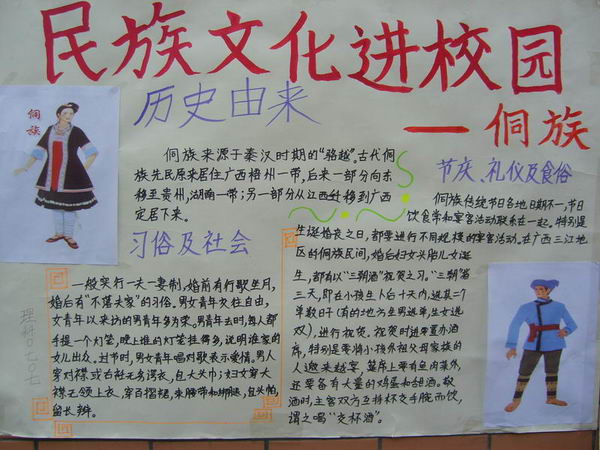 民族文化进校园
—侗族
侗族
历史由来
侗族来源于秦汉时期的“骆越”。古代侗
族先民原来居住广西梧州一带,后来一部分向东
移至贵州,湖南一带;另一部分从江西迁移到广西
定居下来。
习俗及社会
一般实行一夫一妻制,婚前有行歌坐月,
婚后有“不落夫家”的习俗。男女青年交往自由,
女青年以来访的男青年多为荣。男青年去时,每人都
手提一个灯笼,晚上谁的灯笼挂得多,说明谁家的
女儿出众。过节时,男女青年唱对歌表示爱情。男人
穿对襟或右衽无领衣,包大头巾;妇女穿大
襟无领上衣,穿百褶裙,束腰带和绑腿,包头帕,
留长辫。
节庆、礼仪及食俗
侗族传统节日各地日期不一,节日
饮食常和宴客活动联系在一起。特别是
生诞婚丧之日,都要进行不同规模的宴客活动。在广西三江地
区的侗族民间,婚后妇女头胎儿女诞
生,都有以“三朝酒”祝贺之习。“三朝第
三天,即在小孩生下后十天内,选其一个
单数日子(有的地方生男选单,生女选
双),进行祝贺。祝贺时进要置办酒
席,特别是要将小孩外祖父母家族的
人邀来赴宴。筵席上要有鱼肉菜外,
还要备有大量的鸡蛋和甜酒。敬
酒时,主客双方互持杯交手腕而饮,
谓之喝“交杯酒”。